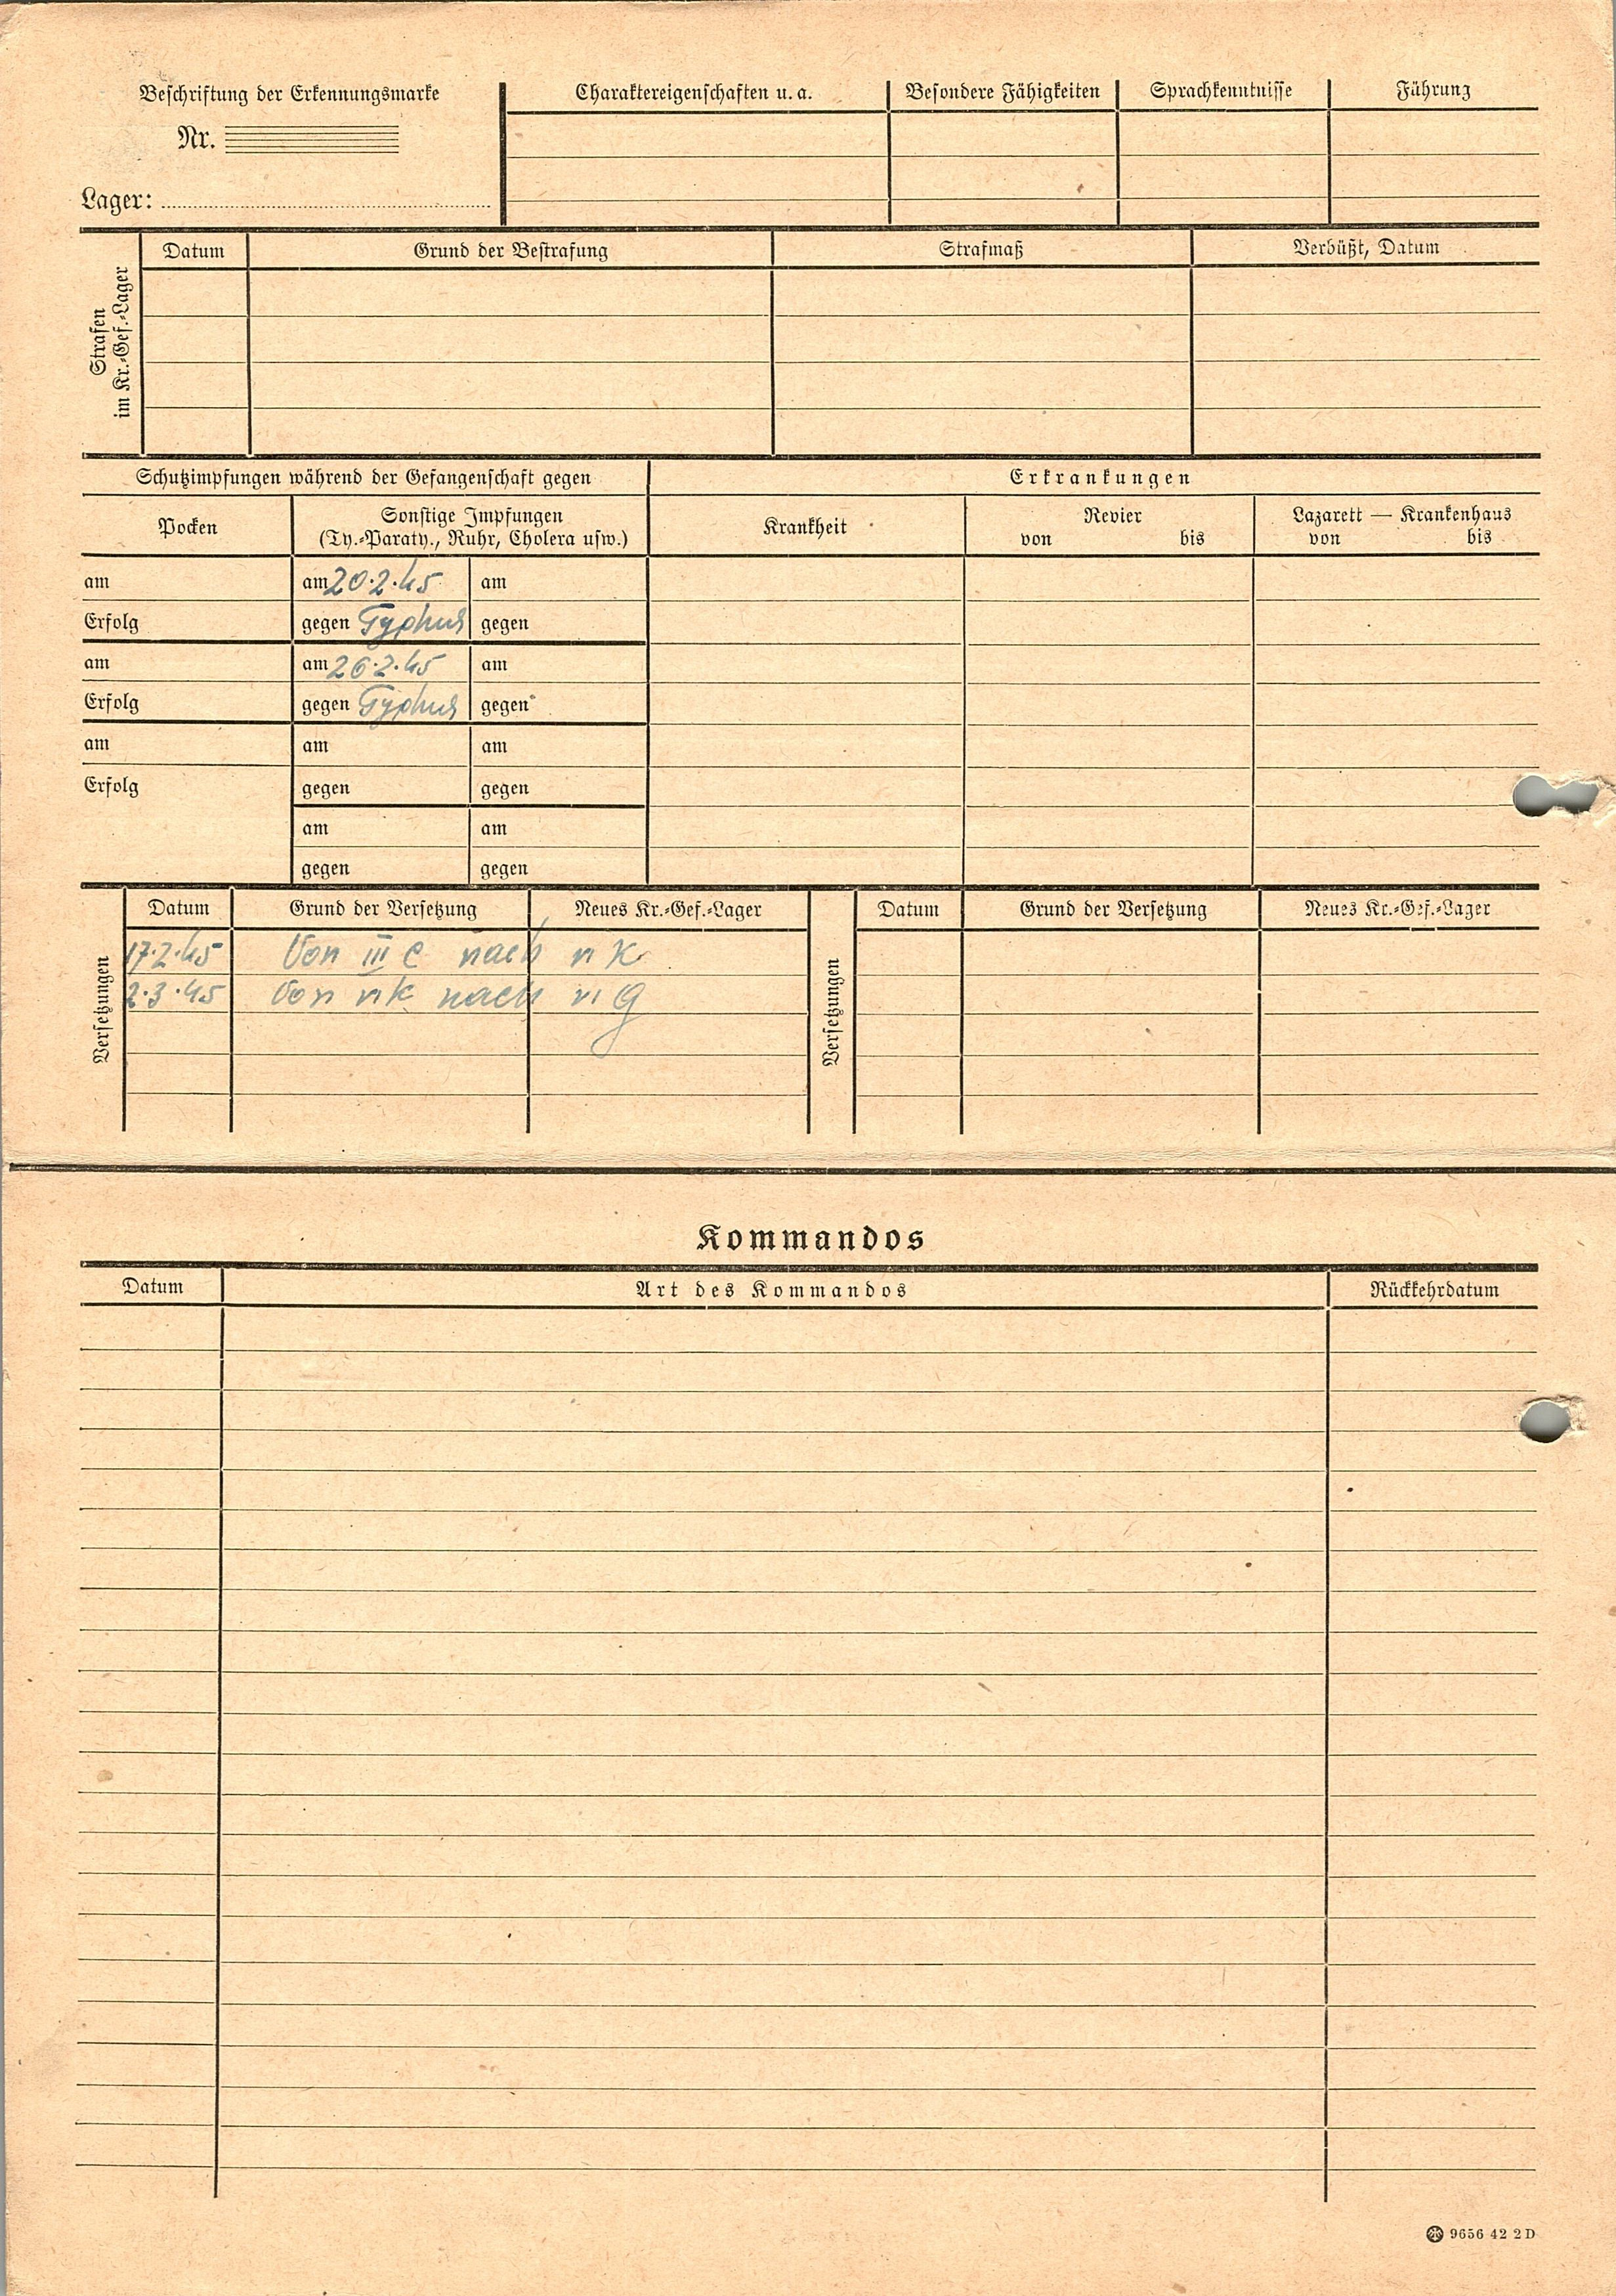 Beschriftung der Erkennungsmarke
Nr.
Lager:
Charaktereigenschaften u. a.
Besondere Fähigkeiten
Sprachkenntnisse
Führung
Strafen
im Kr.-Gef.-Lager
Datum
Grund der Bestrafung
Strafmaß
Verbüßt, Datum
Schutzimpfungen während der Gefangenschaft gegen
Erkrankungen
Pocken
Sonstige Impfungen
(Ty.-Paraty., Ruhr, Cholera usw.)
Krankheit
Revier
von bis
Lazarett — Krankenhaus
von bis
am am 20.2.45 am
Erfolg gegen Typhus gegen
am am 26.2.45 am
Erfolg gegen Typhus gegen
am am am
Erfolg gegen gegen
am am
gegen gegen
Versetzungen
Datum Grund der Versetzung Neues Kr.-Gef.-Lager
17.2.45 Von III C nach
2.3.45 Von nach
Versetzungen
Datum Grund der Versetzung Neues Kr.-Gef.-Lager
Kommandos
Datum Art des Kommandos Rückkehrdatum
9656 42 2 D